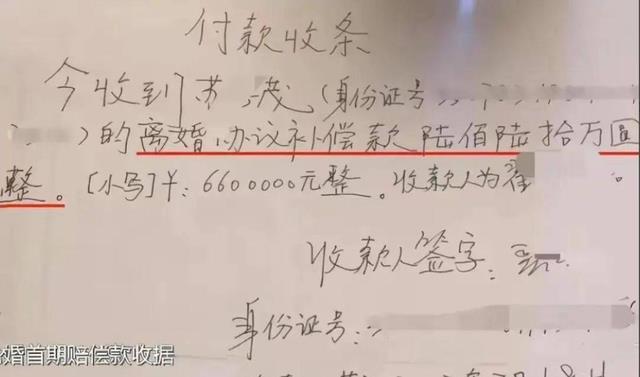 付款收条
今收到苏 茂(身份证号
)的离婚协议补偿款陆佰陆拾万圆
整。[小写]¥:6600000元整。收款人为翟 。
收款人签字:
身份证号:
婚首期赔偿款收据